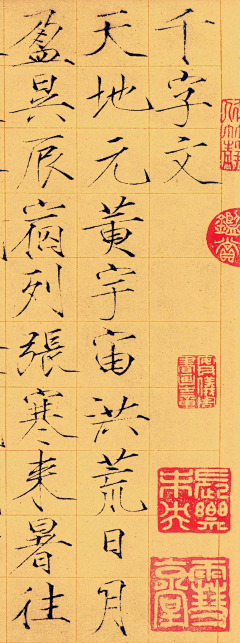 千字文
天地元黄宇宙洪荒日月
盈昃辰宿列張寒来暑往
鑑賞